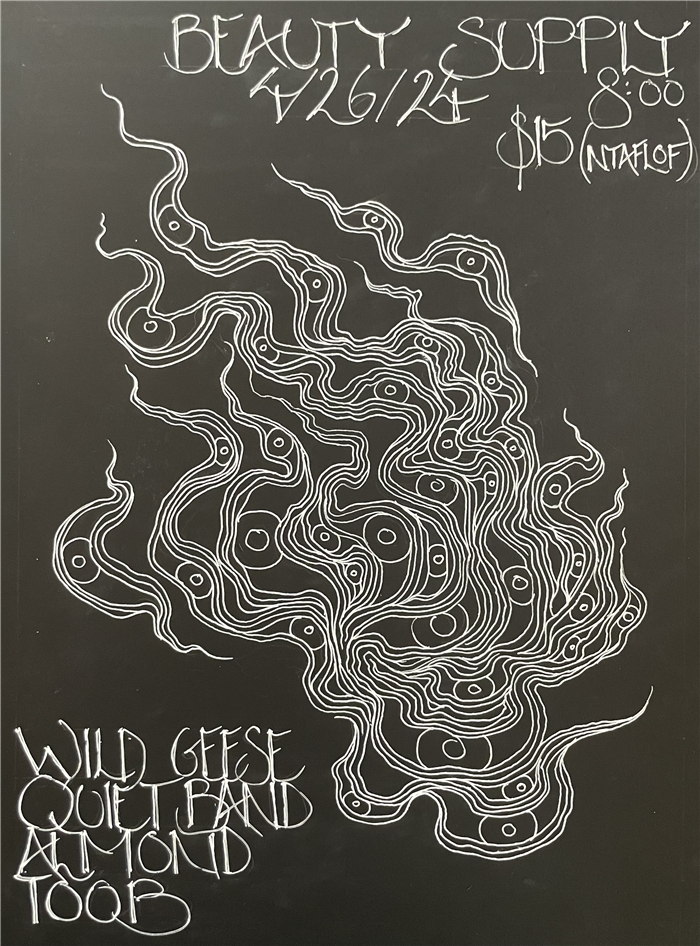 BEAUTY SUPPLY
4/26/24 8:00
$15 (NTAFLOF)
WILD GEESE
QUIET BAND
ALMOND
TOQB